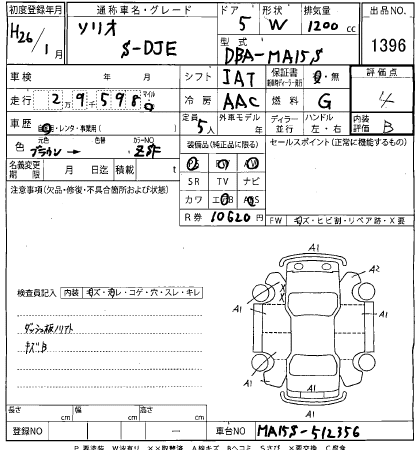 初度登録年月 通称車名・グレード ドア 形状 排気量 出品NO
H26/1月 ソリオ S-DJE 5 W 1200 cc 1396
型式 DBA-MA15S
車検 年 月 シフト IAT 保証書 有・無 評価点 4
走行 2 9千 5 9 8 マイル 冷房 AAC 燃料 G
車歴 自家用・レンタ・事業用( ) 定員 5人 外車モデル 年 ディーラー 並行 ハンドル 左・右 内装評価 B
色 元色 ブラウン → 色替 カラーNO ZSF
装備品(純正品に限る) セールスポイント(正常に機能するもの)
名義変更期限 月 日迄 積載 t
PS PW
SR TV ナビ
注意事項(欠品・修復・不具合箇所および状態)
カワ エアB
R券 10620円
FW キズ・ヒビ割・リペア跡・X要
検査員記入 内装 キズ・汚レ・コゲ・穴・スレ・キレ
ダッシュ板ノリアト
キズB
A1
A1 A2
A1 A1
A1 A1
A1
長さ cm 幅 cm 高さ cm
登録NO ー 車台NO MA15S-512356
P要塗装 W波有り XX取替済 A線キズ Bヘコミ Sさび X要交換 C腐食